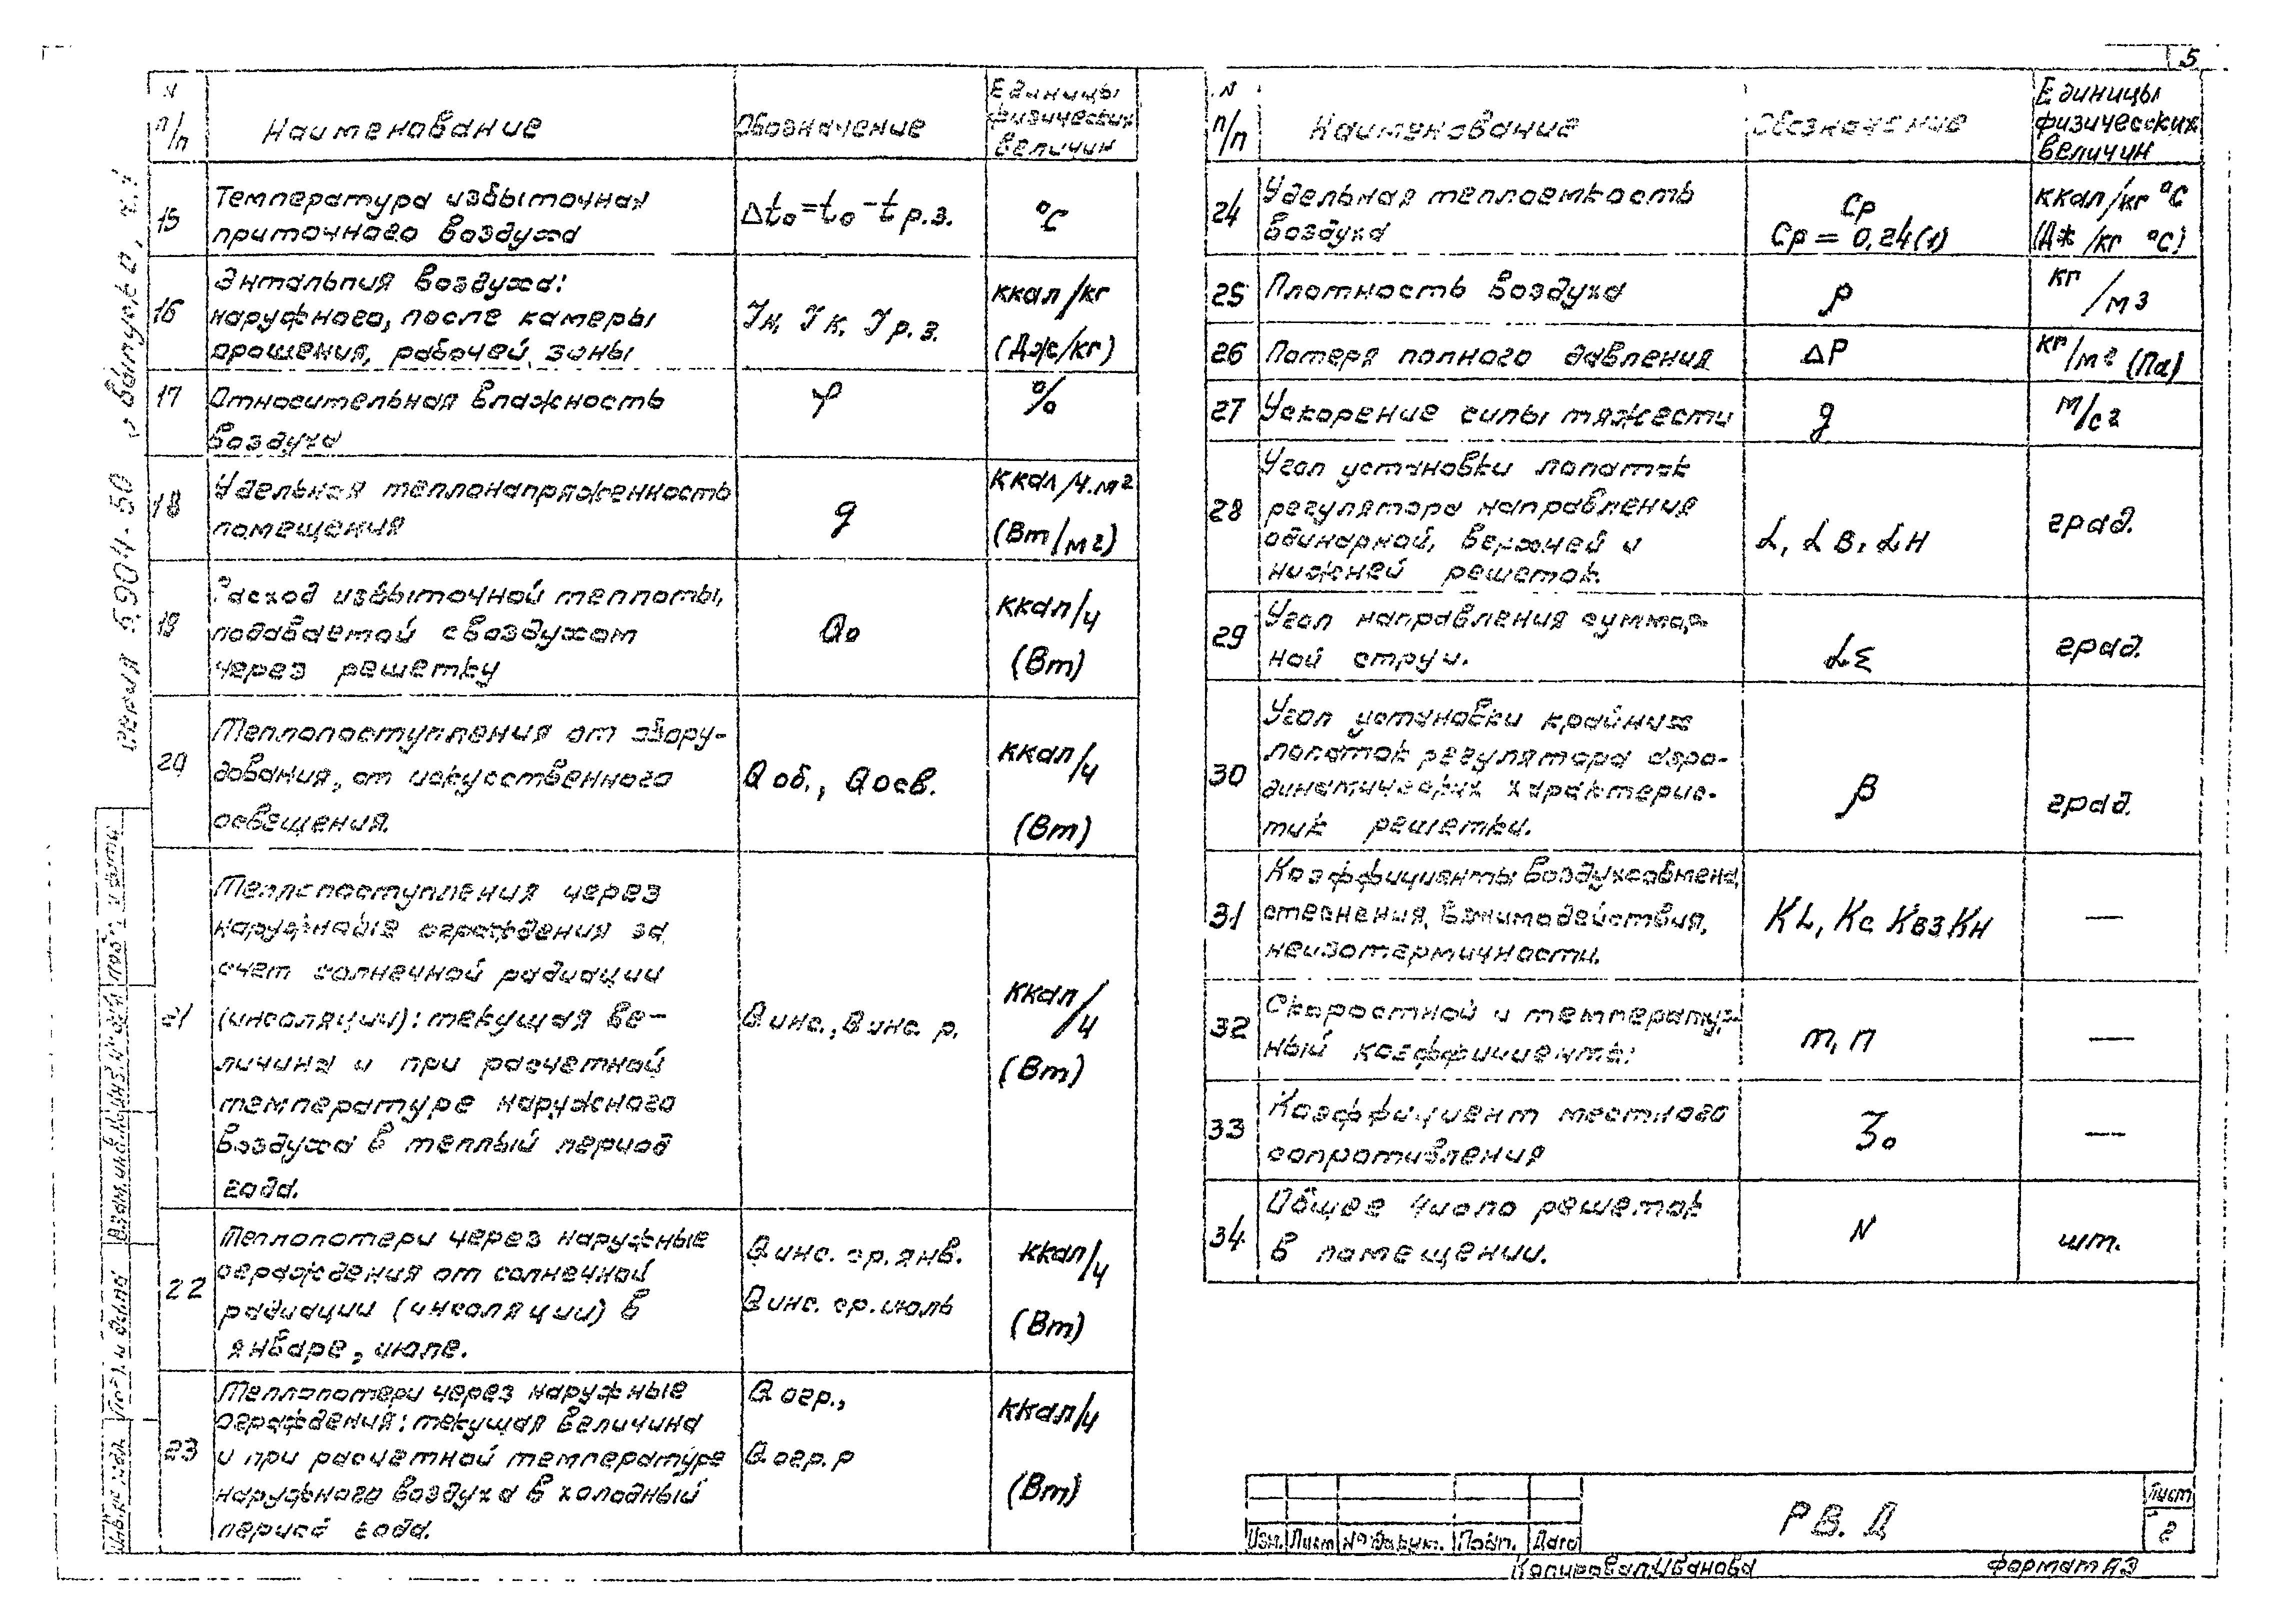 5
N п/п
Наименование
Обозначение
Единицы физических величин
15
Температура избыточная
приточного воздуха
Δto=to-tр.з.
°C
16
Энтальпия воздуха:
наружного, после камеры
орошения, рабочей зоны
Iн, Iк, Iр.з.
ккал/кг
(Дж/кг)
17
Относительная влажность
воздуха
φ
%
18
Удельная теплонапряженность
помещения
q
ккал/ч.м2
(Вт/м2)
19
Расход избыточной теплоты,
подаваемой с воздухом
через решетку
Qo
ккал/ч
(Вт)
20
Теплопоступления от обору-
дования, от искусственного
освещения.
Qоб., Qосв.
ккал/ч
(Вт)
21
Теплопоступления через
наружные ограждения за
счет солнечной радиации
(инсоляции): текущая ве-
личина и при расчетной
температуре наружного
воздуха в теплый период
года.
Qинс., Qинс. р.
ккал/ч
(Вт)
22
Теплопотери через наружные
ограждения от солнечной
радиации (инсоляции) в
январе, июле.
Qинс. ср. янв.
Qинс. ср. июль
ккал/ч
(Вт)
23
Теплопотери через наружные
ограждения: текущая величина
и при расчетной температуре
наружного воздуха в холодный
период года.
Qогр.,
Qогр. р
ккал/ч
(Вт)
N п/п
Наименование
Обозначение
Единицы
физических
величин
24
Удельная теплоемкость
воздуха
Cр
Cр = 0,24(1)
ккал/кг °C
(Дж/кг °C)
25
Плотность воздуха
ρ
кг/м3
26
Потеря полного давления
ΔP
кг/м2 (Па)
27
Ускорение силы тяжести
g
м/с2
28
Угол установки лопаток
регулятора направления
одинарной, верхней и
нижней решеток.
α, αв, αн
град.
29
Угол направления суммар-
ной струи.
αΣ
град.
30
Угол установки крайних
лопаток регулятора аэро-
динамических характерис-
тик решетки.
β
град.
31
Коэффициенты воздухообмена,
стеснения, взаимодействия,
неизотермичности.
KL, Kс Kвз Kн
—
32
Скоростной и температур-
ный коэффициенты:
m, n
—
33
Коэффициент местного
сопротивления
ζo
—
34
Общее число решеток
в помещении.
N
шт.
Серия 5.904-50 Выпуск 0, ч.1
Инв.№ подл. Подп. и дата Взам.инв.№ Инв.№ дубл. Подп. и дата
Изм. Лист № докум. Подп. Дата
РВ. Д
Лист
2
Копировал: Иванова
Формат А3